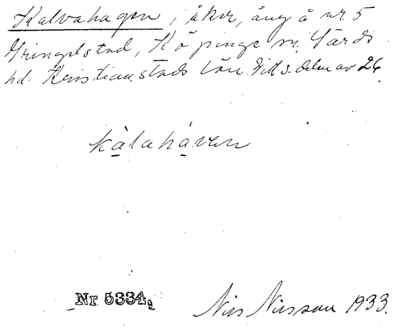 Kalvahagen, åker, äng å nr 5
Gringelstad, Köpinge sn. Gärds
hd. Kristianstads län. Till s. delen av 26.
kalahaven
Nr 5334.
Nils Nilsson 1933.